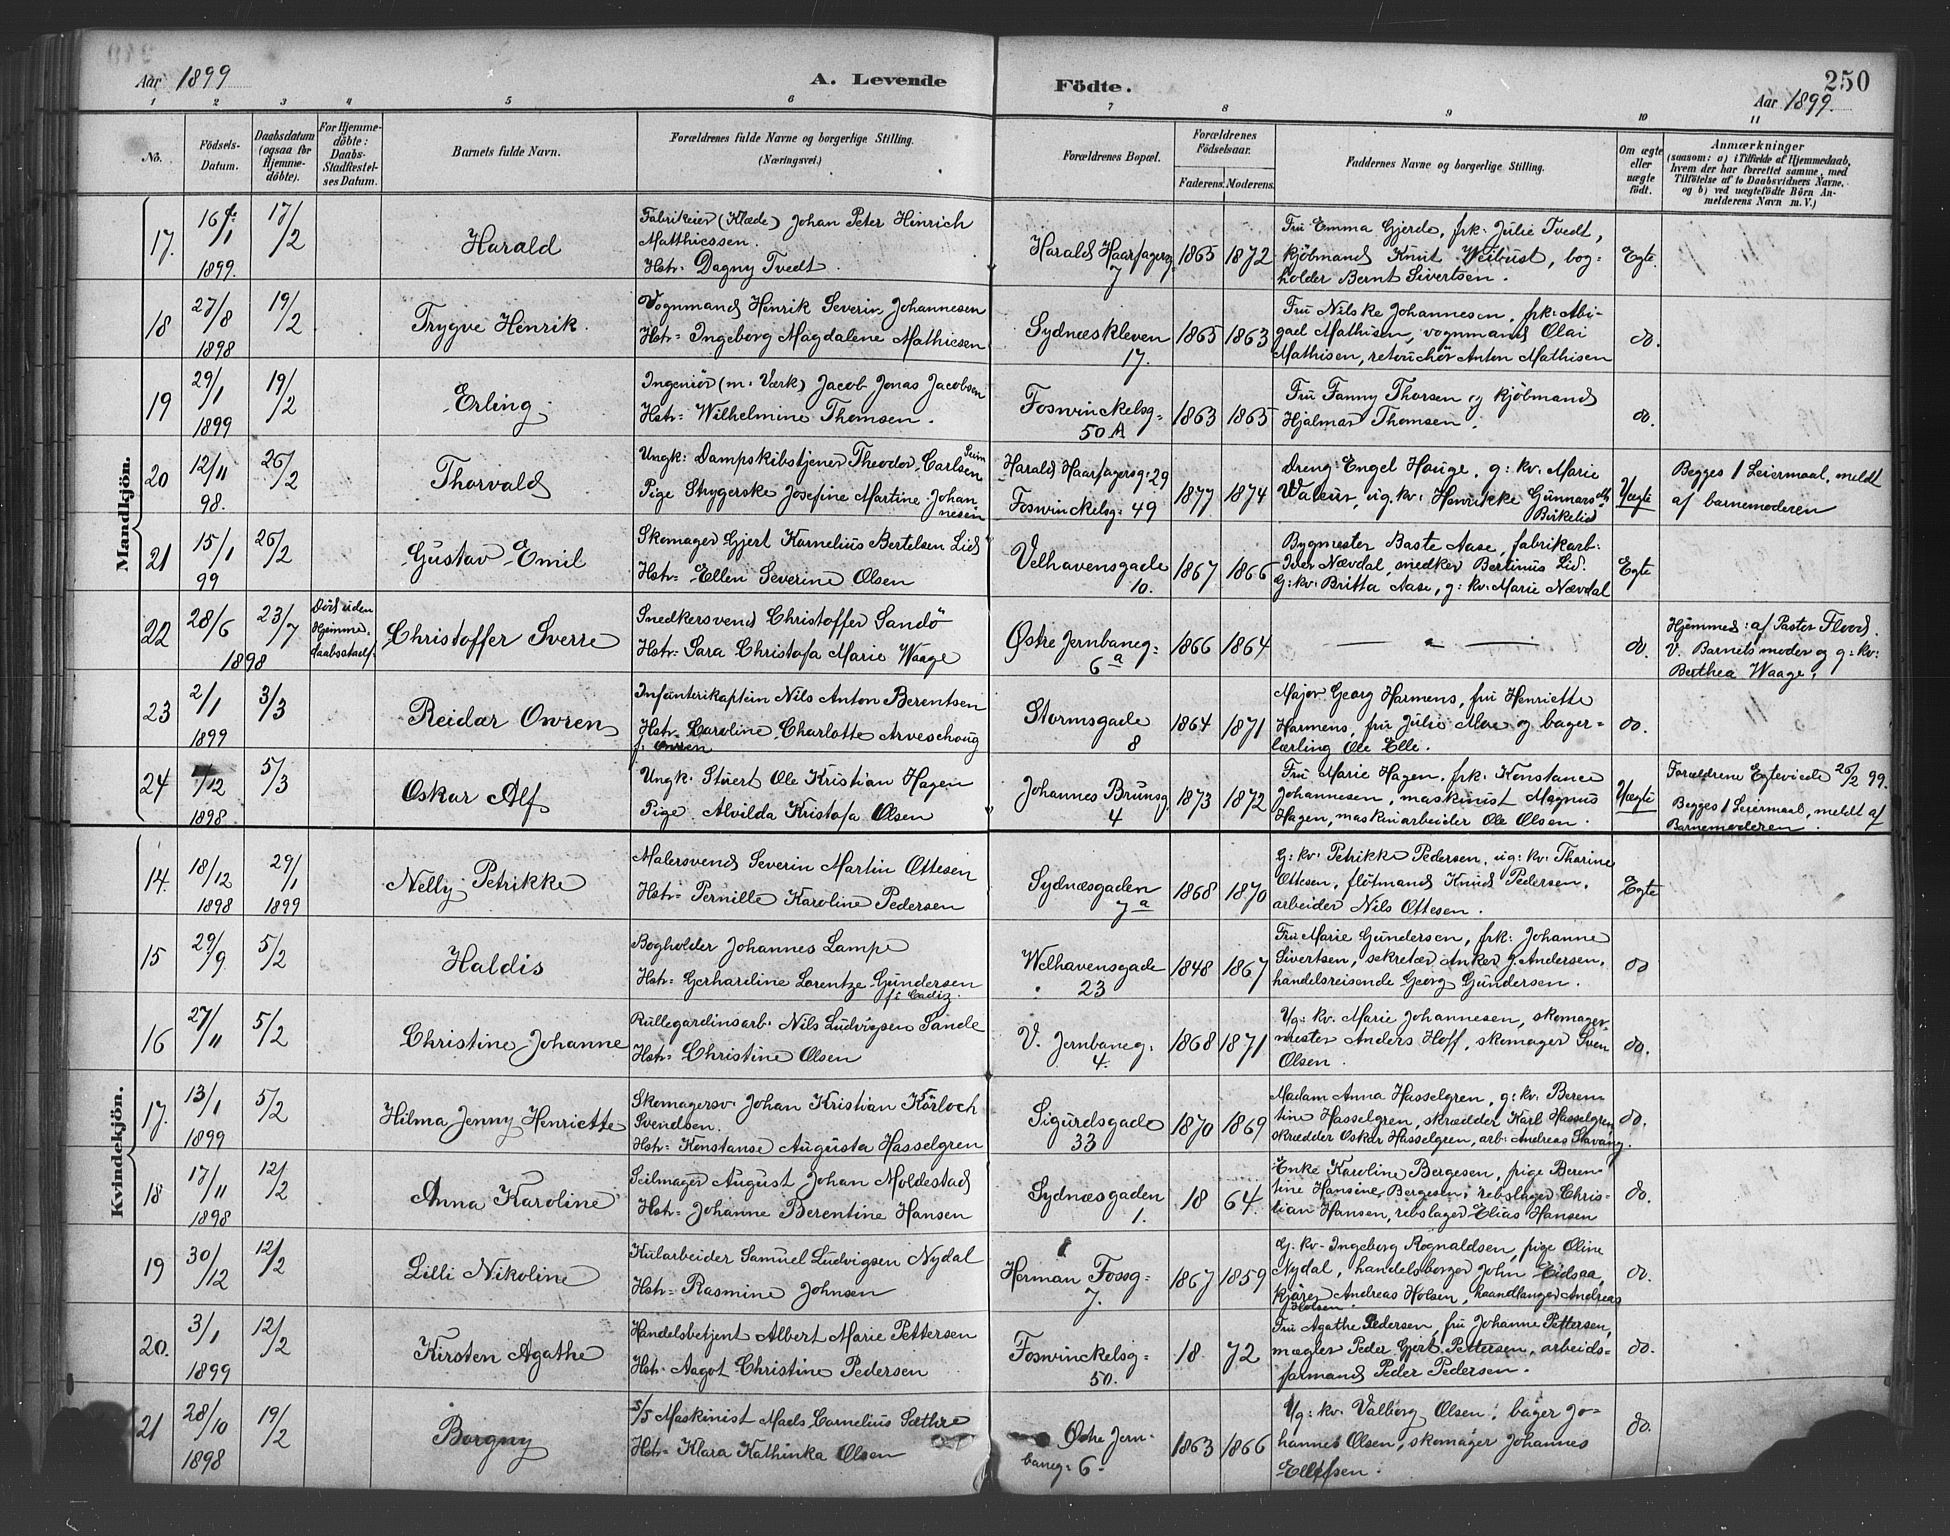 Aar 1899 A. Levende Födte. 250
Aar 1899.
1 2 3 4 5 6 7 8 9 10 11
No. Födsels-Datum. Daabsdatum (ogsaa for Hjemme-döbte). For Hjemme-döbte: Daabs-Stadfæstel-ses Datum. Barnets fulde Navn. Forældrenes fulde Navne og borgerlige Stilling. (Næringsvei.) Forældrenes Bopæl. Forældrenes Födselsaar. Faderens. Moderens. Faddernes Navne og borgerlige Stilling. Om ægte eller uægte födt. Anmærkninger (saasom: a) i Tilfælde af Hjemmedaab, hvem der har forrettet samme, med Tilföielse af to Daabsvidners Navne, og b) ved uægtefödte Börn An-melderens Navn m. V.)
Mandkjön.
17. 16/1 1899. 17/2 Harald
Fabrikeier (Klæde) Johan Peter Hinrich
Matthiessen.
Hstr. Dagny Tvedt.
Harald Haarfagersg. 7 1865 1872
Fru Emma Gjerde, frk. Julie Tvedt,
kjöbmand Knut Weibust, bog-
holder Bernt Sivertsen.
Egte.
18 27/8 1898 19/2 Trygve Henrik.
Vognmand Henrik Severin Johannesen
Hstr. Ingeborg Magdalene Mathiesen
Sydnæskleven 17. 1865 1863
Fru Nilske Johannesen, frk. Abi-
gael Mathisen, vognmand Olai
Mathisen, retouchör Anton Mathisen
do.
19 29/1 1899 19/2 Erling.
Ingeniör (m. Værk) Jacob Jonas Jacobsen
Hstr. Wilhelmine Thomsen.
Foswinckelsg. 50 A 1863 1865
Fru Fanny Thorsen og kjöbmand
Hjalmar Thomsen.
do.
20 12/11 98. 26/2 Thorvald
Ungk: Dampskibstjener Theodor Carlsen
Pige Strygerske Josefine Martine Johan
nesen
Harald Haarfagersg. 29
Foswinckelsg. 49 1877 1874
Dreng Engel Hauge, g: kv: Marie
Valeur, ug. kv: Henrikke Gunnarsdtr
Birkelid
Uægte
Begges 1 Leiermaal, meldt
af barnemoderen
21 15/1 99 26/2 Gustav Emil
Skomager Gjert Kornelius Bertelsen Lid
Hstr. Ellen Severine Olsen
Velhavensgade 10. 1867 1866
Bygmester Baste Aase, fabrikarb:
Iver Nævdal, snedker Bertinus Lid.
g: kv: Britta Aase, g: kv: Marie Nævdal
Egte
22 28/6 23/7 1898 Död uden
Hjemme-
daabsstadf.
Christoffer Sverre
Snedkersvend Christoffer Sandö
Hstr. Sara Christofa Marie Waage
Østre Jernbaneg: 6a 1866 1864
do.
Hjemmed: af Pastor Flood.
V. Barnets moder og g: kv:
Berthea Waage.
23 2/1 1899 3/3 Reidar Owren
Infanterikaptein Nils Anton Berentsen
Hstr. Caroline Charlotte Arveschoug
f. Owren
Stormsgade 8 1864 1871
Major Georg Harmens, fru Henriette
Harmens, fru Julie Moe og bager-
lærling Ole Elle.
do.
24 /12 1898 5/3 Oskar Alf
Ungk. Stuert Ole Kristian Hagen
Pige. Alvilda Kristofa Olsen
Johannes Brunsg. 4 1873 1872
Fru Marie Hagen, frk. Konstance
Johannesen, maskinist Magnus
Hagen, maskinarbeider Ole Olsen.
Uægte
Forældrene Egteviede 26/2 99.
Begges 1 Leiermaal, meldt af
Barnemoderen.
Kvindekjön.
14. 18/12 1898 29/1 1899 Nelly Petrikke
Malersvend Severin Martin Ottesen
Hstr. Pernille Karoline Pedersen
Sydnæsgaden 7a 1868 1870
G: kv: Petrikke Pedersen, ug: kv: Thorine
Ottesen, flötmand Knud Pedersen,
arbeider Nils Ottesen.
Egte
15 29/9 5/2 Haldis
Bogholder Johannes Lampe
Hstr. Gerhardine Lorentze Gundersen
f: Cadiz.
Welhavensgade 23 1848 1867
Fru Marie Gundersen, frk: Johanne
Sivertsen, sekretær Anker J. Andersen,
handelsreisende Georg Gundersen.
do
16 27/11 5/2 Christine Johanne
Rullegardinsarb. Nils Ludvigsen Sande
Hstr. Christine Olsen
V. Jernbaneg. 4. 1868 1871
Ug: kv. Marie Johannesen, skomager-
mester Anders Hoff, skomager Sven
Olsen.
do.
17. 13/1 1899 5/2 Hilma Jenny Henriette
Skomagersv. Johan Kristian Körloch
Svendsen.
Hstr. Konstanse Augusta Hasselgren
Sigurdsgade 33 1870 1869
Madam Anna Hasselgren, g: kv. Beren-
tine Hasselgren, skrædder Karl Hasselgren
skrædder Oskar Hasselgren, arb. Andreas Stavang.
do.
18 17/11 1898 12/2 Anna Karoline
Seilmager August Johan Moldestad
Hstr. Johanne Berentine Hansen
Sydnæsgaden 1. 18 64.
Enke Karoline Bergesen, pige Beren-
tine Hansine Bergesen, rebslager Chris-
tian Hansen, rebslager Elias Hansen
do.
19 30/12 12/2 Lilli Nikoline
Kularbeider Samuel Ludvigsen Nydal
Hstr. Rasmine Johnsen
Herman Fossg: 7. 1867 1859
G. kv. Ingeborg Rognaldsen, pige Oline
Nydal, handelsborger John Eidsaa,
kjører Andreas Holsen, haandlanger Andreas
Holsen.
do.
20. 3/1 1899 12/2 Kirsten Agathe
Handelsbetjent Albert Marie Pettersen
Hstr. Aagot Christine Pedersen
Foswinckelsg: 50. 18 72
Fru Agathe Pedersen, fru Johanne Pettersen,
mægler Peder Gjert Pettersen, arbeids-
formand Peder Pedersen.
do.
21 28/10 1898 19/2 Borgny
S/S Maskinist Mads Cornelius Sæthre
Hstr. Klara Kathinka Olsen
Østre Jern-
baneg. 6. 1863 1866
Ug: kv. Valborg Olsen, bager Jo-
hannes Olsen, skomager Johannes
Ellefsen.
do.